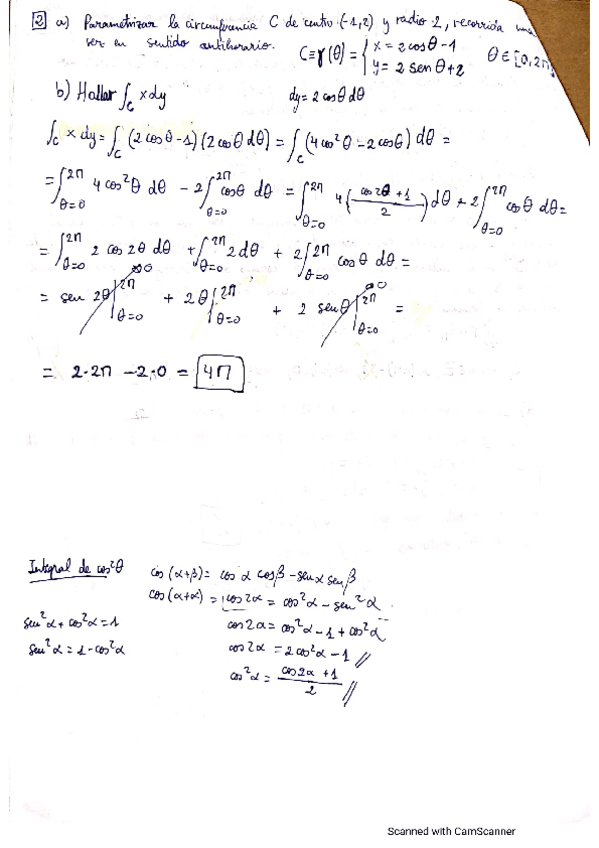 2 a) Parametrizar la circunferencia C de centro (-1,2) y radio 2, recorrida una
vez en sentido antihorario. C≡γ(θ) = { x = 2cosθ-1
y = 2 senθ+2 θ∈[0,2π]
b) Hallar ∫_C xdy dy=2cosθdθ
∫_C xdy = ∫_C (2cosθ-1)(2cosθdθ) = ∫_C (4cos²θ - 2cosθ)dθ =
= ∫_{θ=0}^{2π} 4cos²θ dθ - 2∫_{θ=0}^{2π} cosθ dθ = ∫_{θ=0}^{2π} 4(cos2θ+1 / 2)dθ + 2∫_{θ=0}^{2π} cosθ dθ =
= ∫_{θ=0}^{2π} 2 cos 2θ dθ + ∫_{θ=0}^{2π} 2dθ + 2∫_{θ=0}^{2π} cosθ dθ =
= sen 2θ|_{θ=0}^{2π} 0 + 2θ|_{θ=0}^{2π} + 2 senθ|_{θ=0}^{2π} 0 =
= 2·2π - 2·0 = 4π
Integral de cos²θ cos(α+β) = cosα cosβ - senα senβ
cos(α+α) = cos2α = cos²α - sen²α
sen²α + cos²α = 1 cos2α = cos²α - 1 + cos²α
sen²α = 1 - cos²α cos2α = 2cos²α - 1 //
cos²α = cos2α + 1 / 2 //
Scanned with CamScanner